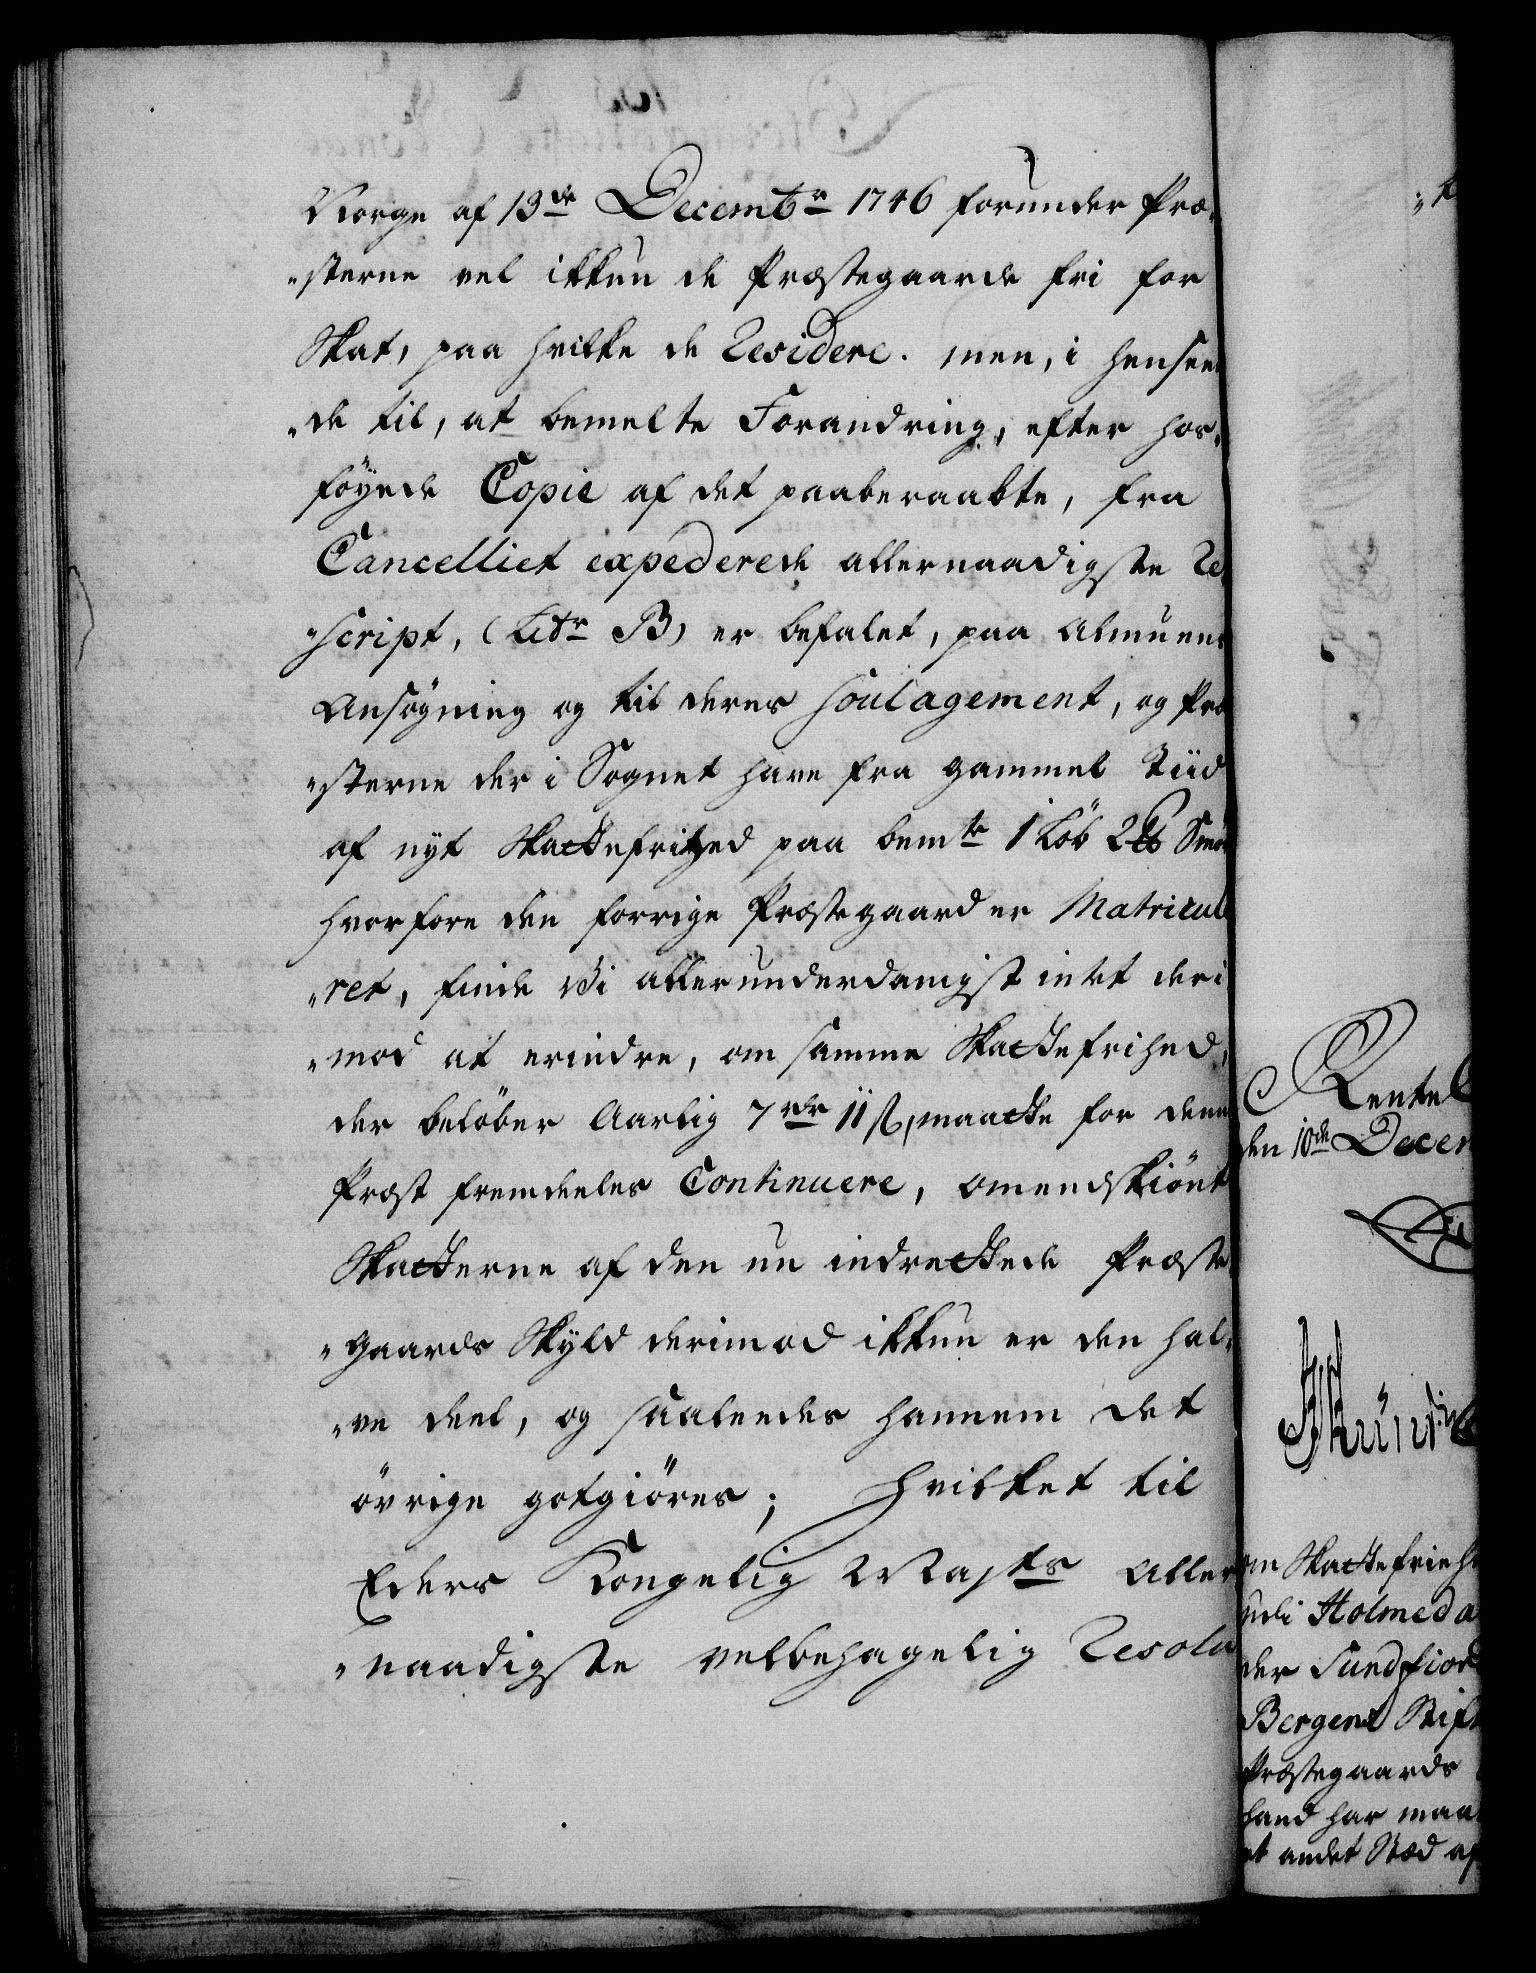 Norge af 13de Decembr 1746 forunder Præ-
"sterne vel ikkun de Præstegaarde fri for
Skat, paa hvilke de Residere. men, i henseen
"de til, at bemelte Forandring, efter hos-
føyede Copie af det paaberaabte, fra
Cancelliet expederede allernaadigste Re
"script, (Litr B) er befalet, paa Almuens
Ansøgning og til deres Soulagement, og Præ
"sterne der i Sognet have fra gammel Tiid
af nyt Skattefrihed paa bemte 1 Løb 2 Smør
hvorfore den forrige Præstegaard er Matricule
"ret, finde Vi allerunderdanigst intet deri
"mod at erindre, om samme Skattefrihed,
der beløber Aarlig 7 rdr 11 s, maatte for denne
Præst fremdeeles Continuere, omendskiønt
Skatterne af den nu indrettede Præste
"gaards Skyld derimod ikkun er den hal-
"ve deel, og saaleedes hannem det
øvrige gotgiøres; Hvilket til
Eders Kongelig Majts Aller
"naadigste velbehagelig Resolu
Rentek
den 10de Decem
om Skattefriehe
udi Holmeda
der Sundfiord
Bergens Stift
Præstegaards
hand har maa
et andet Stæd op